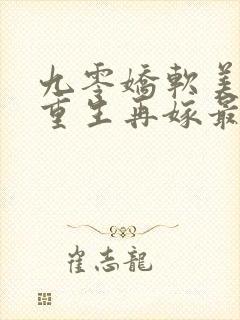 九零嬌軟美
重生再嫁最
崔志龍